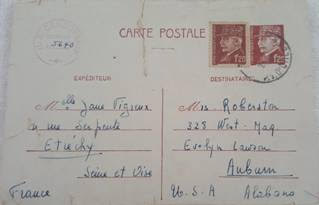 CARTE POSTALE
5640
EXPÉDITEUR
DESTINATAIRE
1F20
1F20
Melle Jane Vigneux
rue Serpente
Etréchy
Seine et Oise
France
Miss Roberston
328 West-Mag
Evelyn Lawson
Auburn
U.S.A Alabama